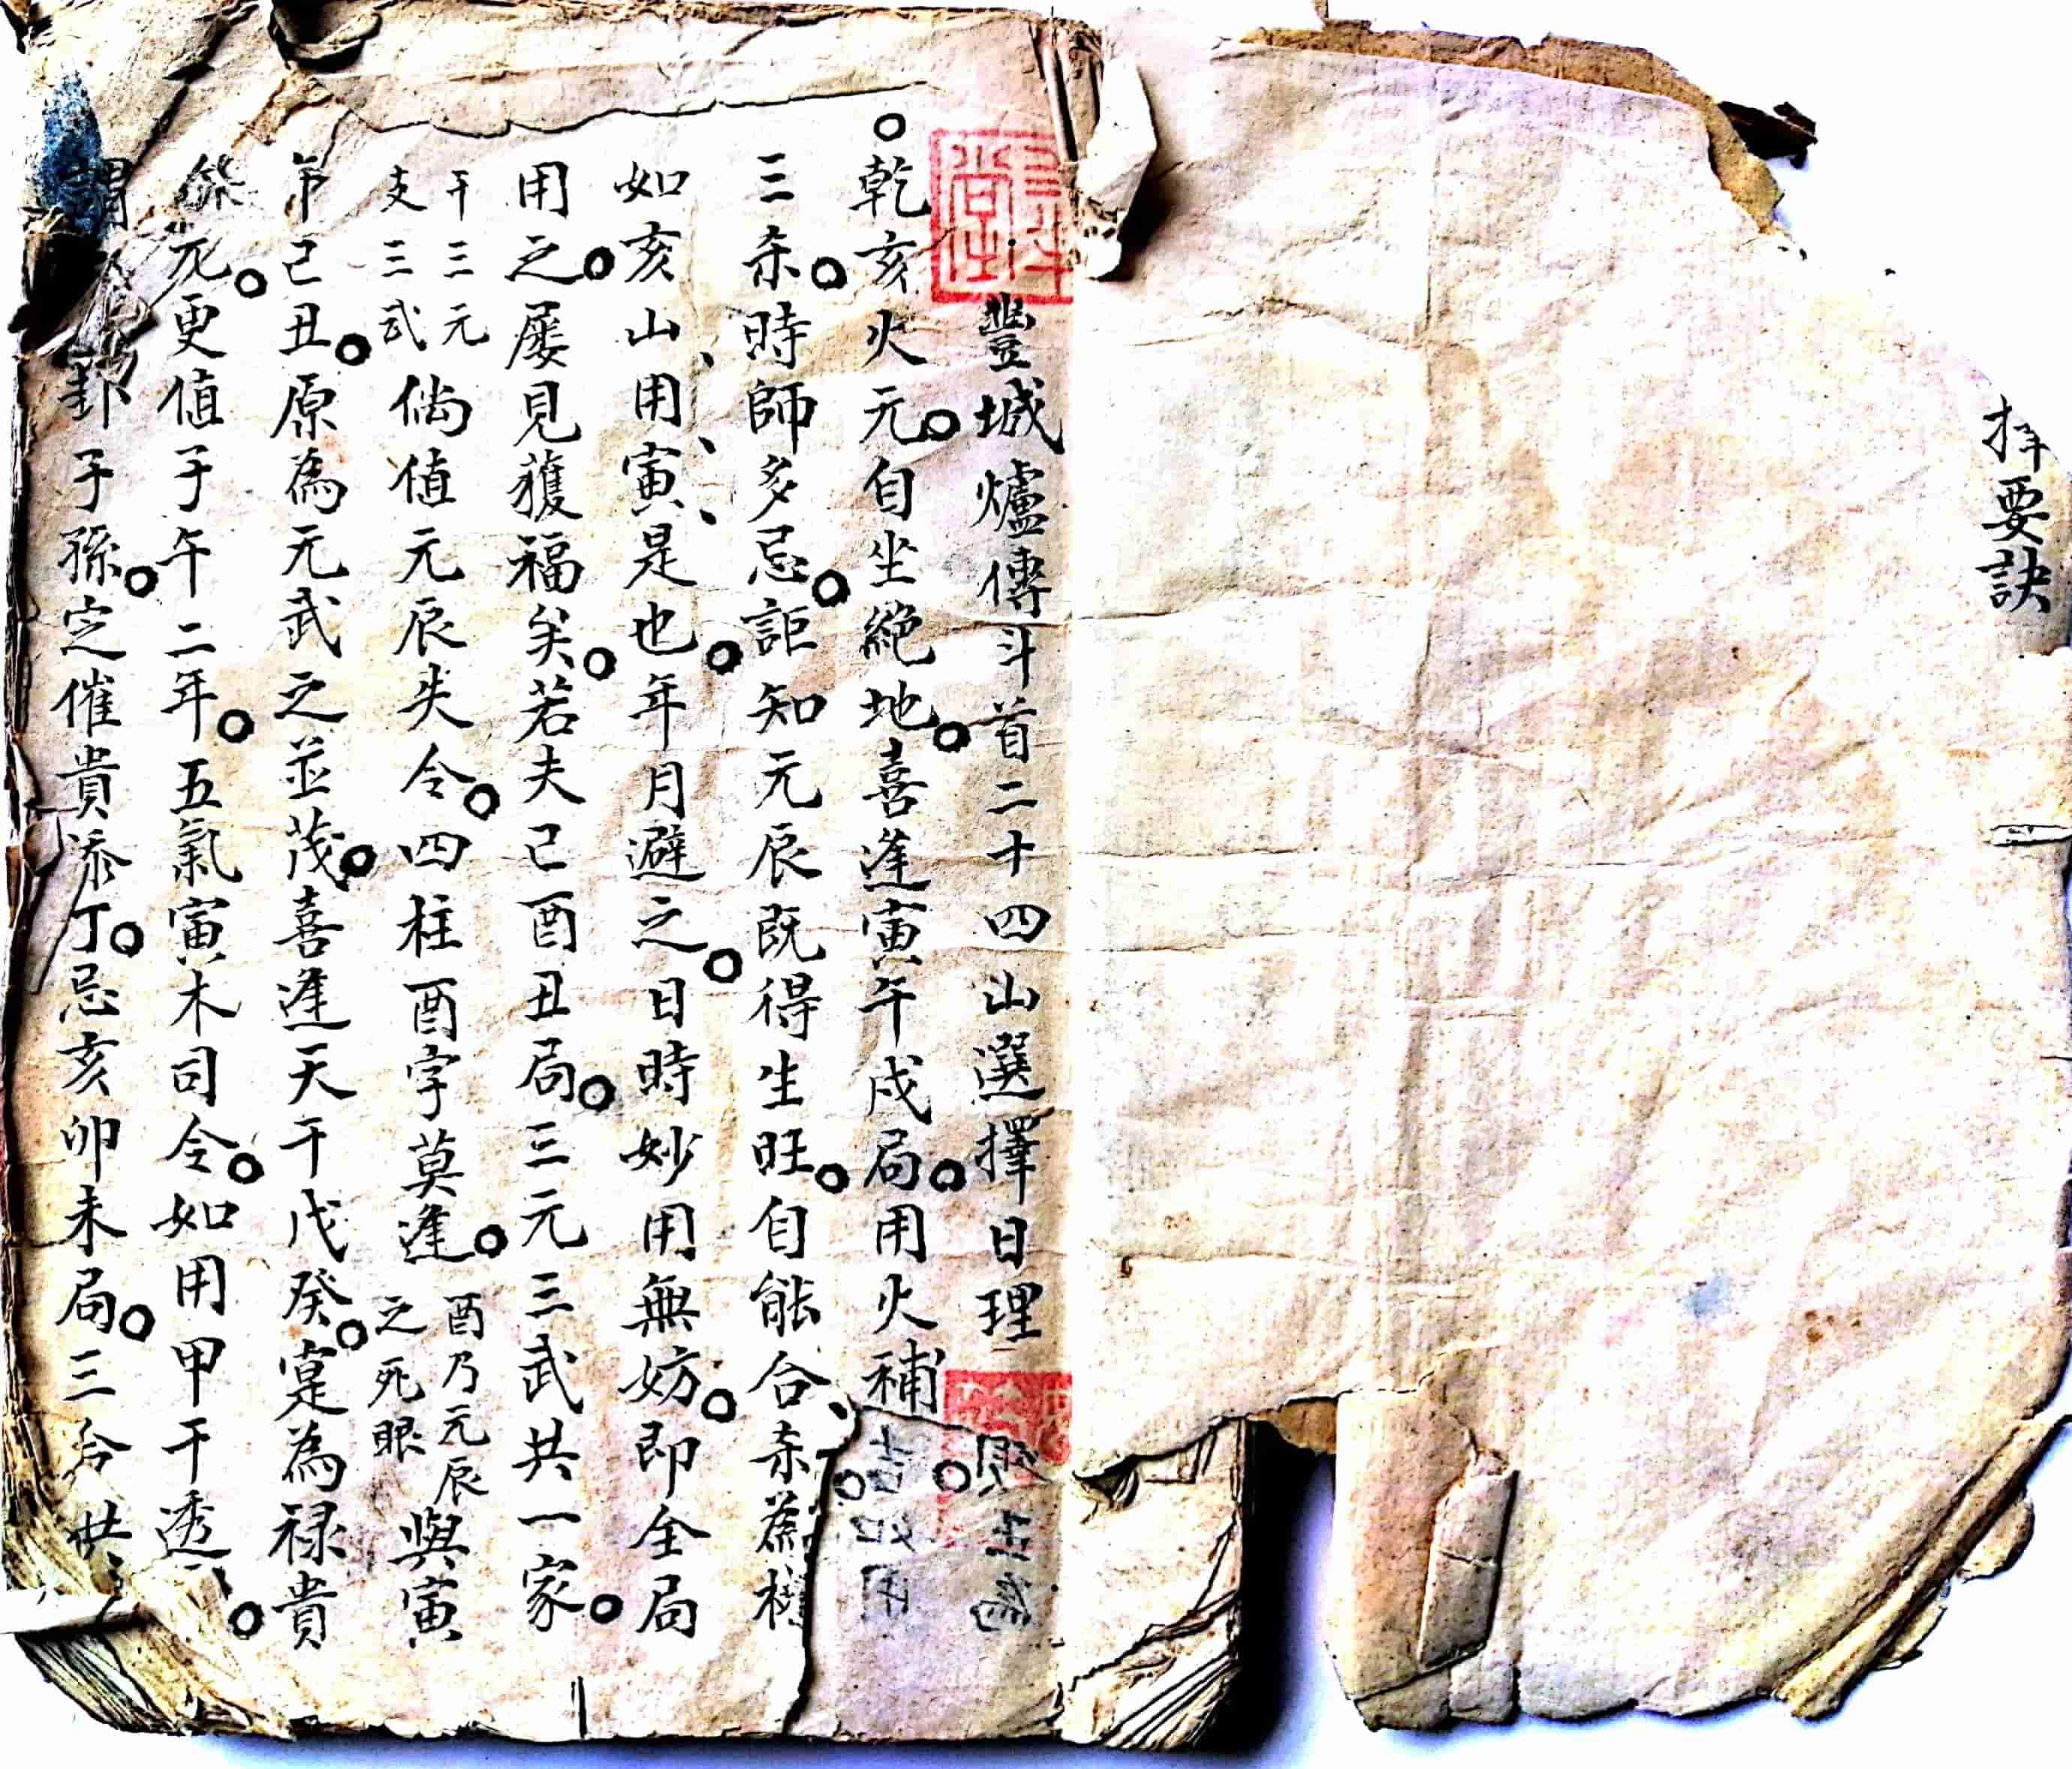 擇要訣
豐城爐傳斗首二十四山選擇日理
○乾亥火元○自坐絕地○喜逢寅午戌局○用火補
三杀○時師多忌○詎知元辰既得生旺○自能合杀為權
如亥山用寅是也○年月避之○日時妙用無妨○即全局
用之○屡見獲福矣○若夫己酉丑局○三元三武共一家○
干三元
支三武
倘值元辰失令○四柱酉字莫逢○
酉乃元辰
之死眼
與寅
午己丑○原為元武之並茂○喜逢天干戊癸○寔為禄貴
元○更值子午二年○五氣寅木司令○如用甲干透○
謂 卦子孫○定催貴添丁○忌亥卯未局○三合